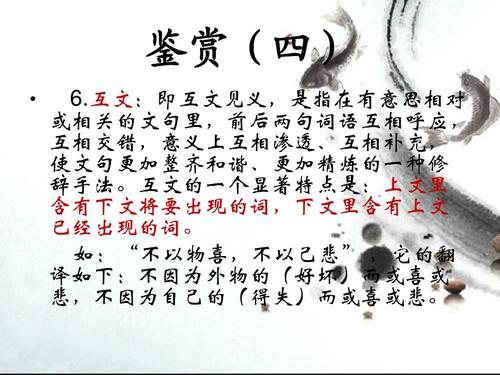 鉴赏（四）
• 6.互文：即互文见义，是指在有意思相对
或相关的文句里，前后两句词语互相呼应，
互相交错，意义上互相渗透、互相补充，
使文句更加整齐和谐、更加精炼的一种修
辞手法。互文的一个显著特点是：上文里
含有下文将要出现的词，下文里含有上文
已经出现的词。
如：“不以物喜，不以己悲”，它的翻
译如下：不因为外物的（好坏）而或喜或
悲，不因为自己的（得失）而或喜或悲。